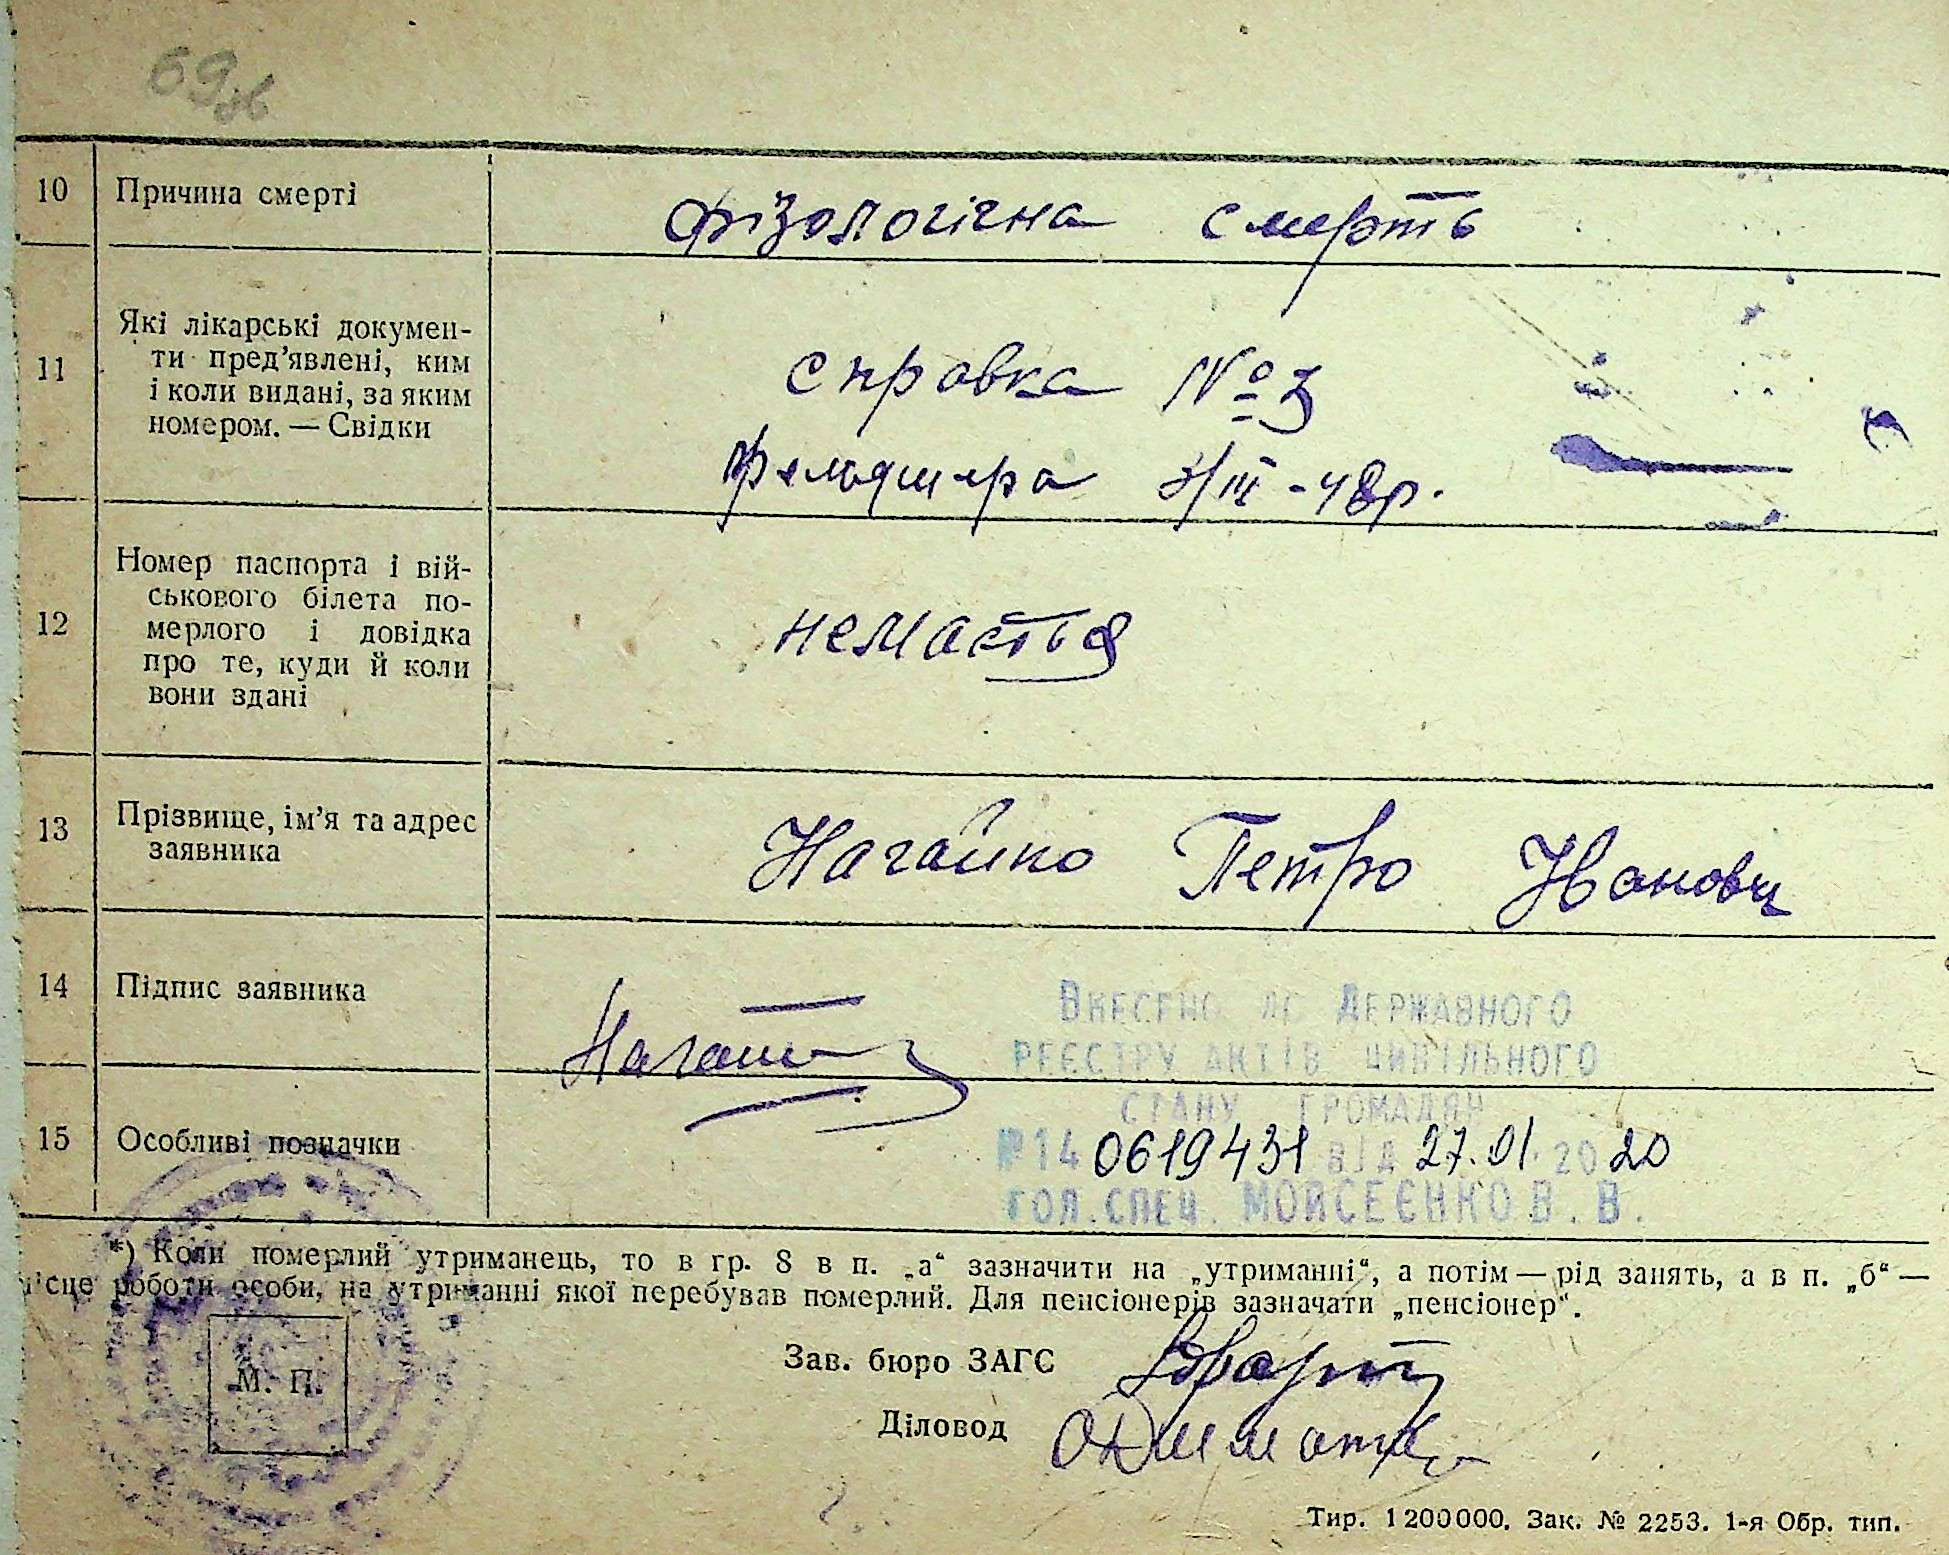 69зв
10 Причина смерті фізологічна смерть
11 Які лікарські докумен-
ти пред’явлені, ким
і коли видані, за яким
номером. — Свідки
справка № 3
фельдшера 3/III - 48р.
12 Номер паспорта і вій-
ськового білета по-
мерлого і довідка
про те, куди й коли
вони здані
немається
13 Прізвище, ім’я та адрес
заявника
Нагайко Петро Іванович
14 Підпис заявника
Внесено до Державного
реєстру актів цивільного
стану громадян
15 Особливі позначки
№ 14 0619431 від 27.01.2020
гол. спец. Моисеєнко В. В.
*) Коли померлий утриманець, то в гр. 8 в п. „а“ зазначити на „утриманні“, а потім — рід занять, а в п. „б“ —
місце роботи особи, на утриманні якої перебував померлий. Для пенсіонерів зазначати „пенсіонер“.
М. П.
Зав. бюро ЗАГС
Діловод
Тир. 1 200 000. Зак. № 2253. 1-я Обр. тип.